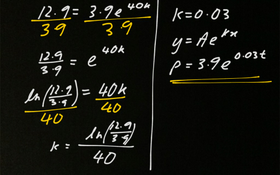 12.9 = 3.9e^40k
3.9 3.9
12.9/3.9 = e^40k
ln(12.9/3.9) = 40k
40 40
k = ln(12.9/3.9)/40
k=0.03
y=Ae^kx
P=3.9e^0.03t